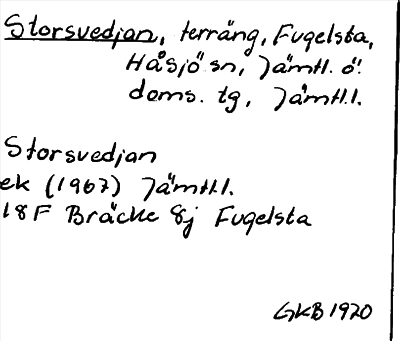 Storsvedjan, terräng, Fugelsta,
Håsjö sn, Jämtl. ö.
doms. tg, Jämtl.l.
Storsvedjan
ek (1967) Jämtl.l.
18F Bräcke 8j Fugelsta
GKB 1970